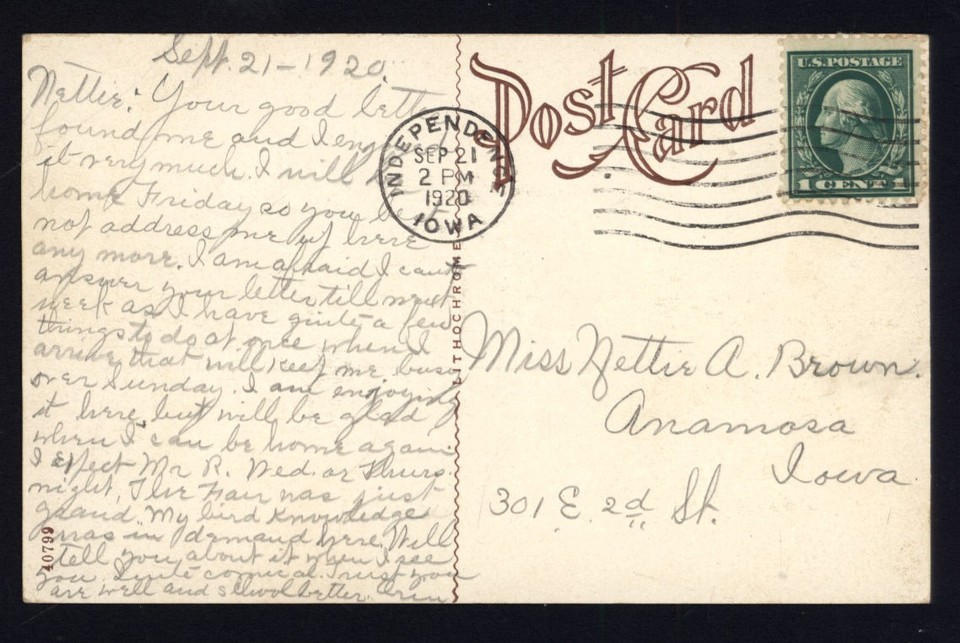 Sept. 21 - 1920.
Nettie: Your good letter
found me and I enj
it very much. I will
home Friday so you
not address me up here
any more. I am afraid I can't
answer your letter till next
week as I have quite a few
things to do at once when I
arrive that will keep me busy
over Sunday. I am enjoying
it here but will be glad
when I can be home again.
I expect Mr R. Wed. or Thurs.
night. The Fair was just
grand. My bird knowledge
was in demand here. Will
tell you about it when I see
you. Quite comical. Trust you
are well and school better.
INDEPENDEN
SEP 21
2 PM
1920
IOWA
Post Card
U.S. POSTAGE
1 CENT 1
LITHOCHROME
Miss Nettie A. Brown.
Anamosa
Iowa.
301 E. 2d St.
40799